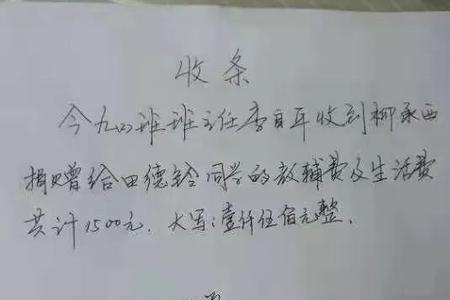 收条
今九四班班主任李自年收到柳承西
捐赠给田德铃同学的教辅费及生活费
共计1500元. 大写:壹仟伍佰元整.